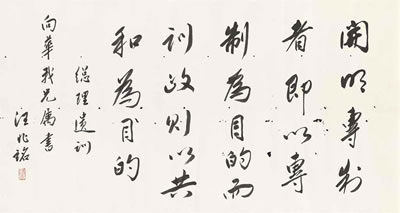 開明專制
者即以專
制為目的而
訓政則以共
和為目的
總理遺訓
向華我兄屬書
汪兆銘